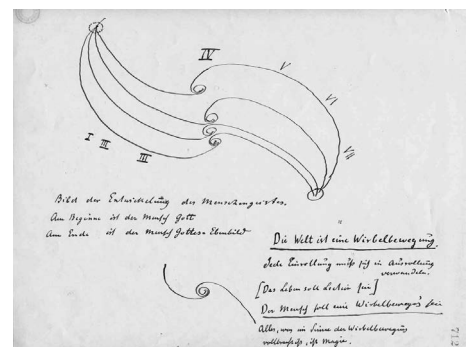 IV
V
VI
VII
I II III
Bild der Entwickelung des Menschengeistes.
Am Beginne ist der Mensch Gott
Am Ende ist der Mensch Gottes Ebenbild
Die Welt ist eine Wirbelbewegung.
Jede Einrollung muß sich in Ausrollung
verwandeln.
[Das Leben soll Lection sein]
Der Mensch soll eine Wirbelbewegung sein
Alles, was im Sinne der Wirbelbewegung
vollbracht ist, ist Magie.